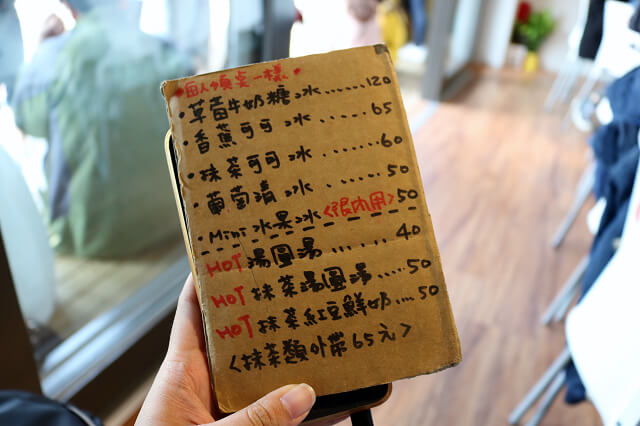 •每人須點一樣•
•草莓牛奶糖冰......120
•香蕉可可冰......65
•抹茶可可冰......60
•葡萄清冰......50
•Mini水果冰<限內用>50
HOT湯圓湯......40
HOT抹茶湯圓湯....50
HOT抹茶紅豆鮮奶....50
<抹茶類外帶65元>